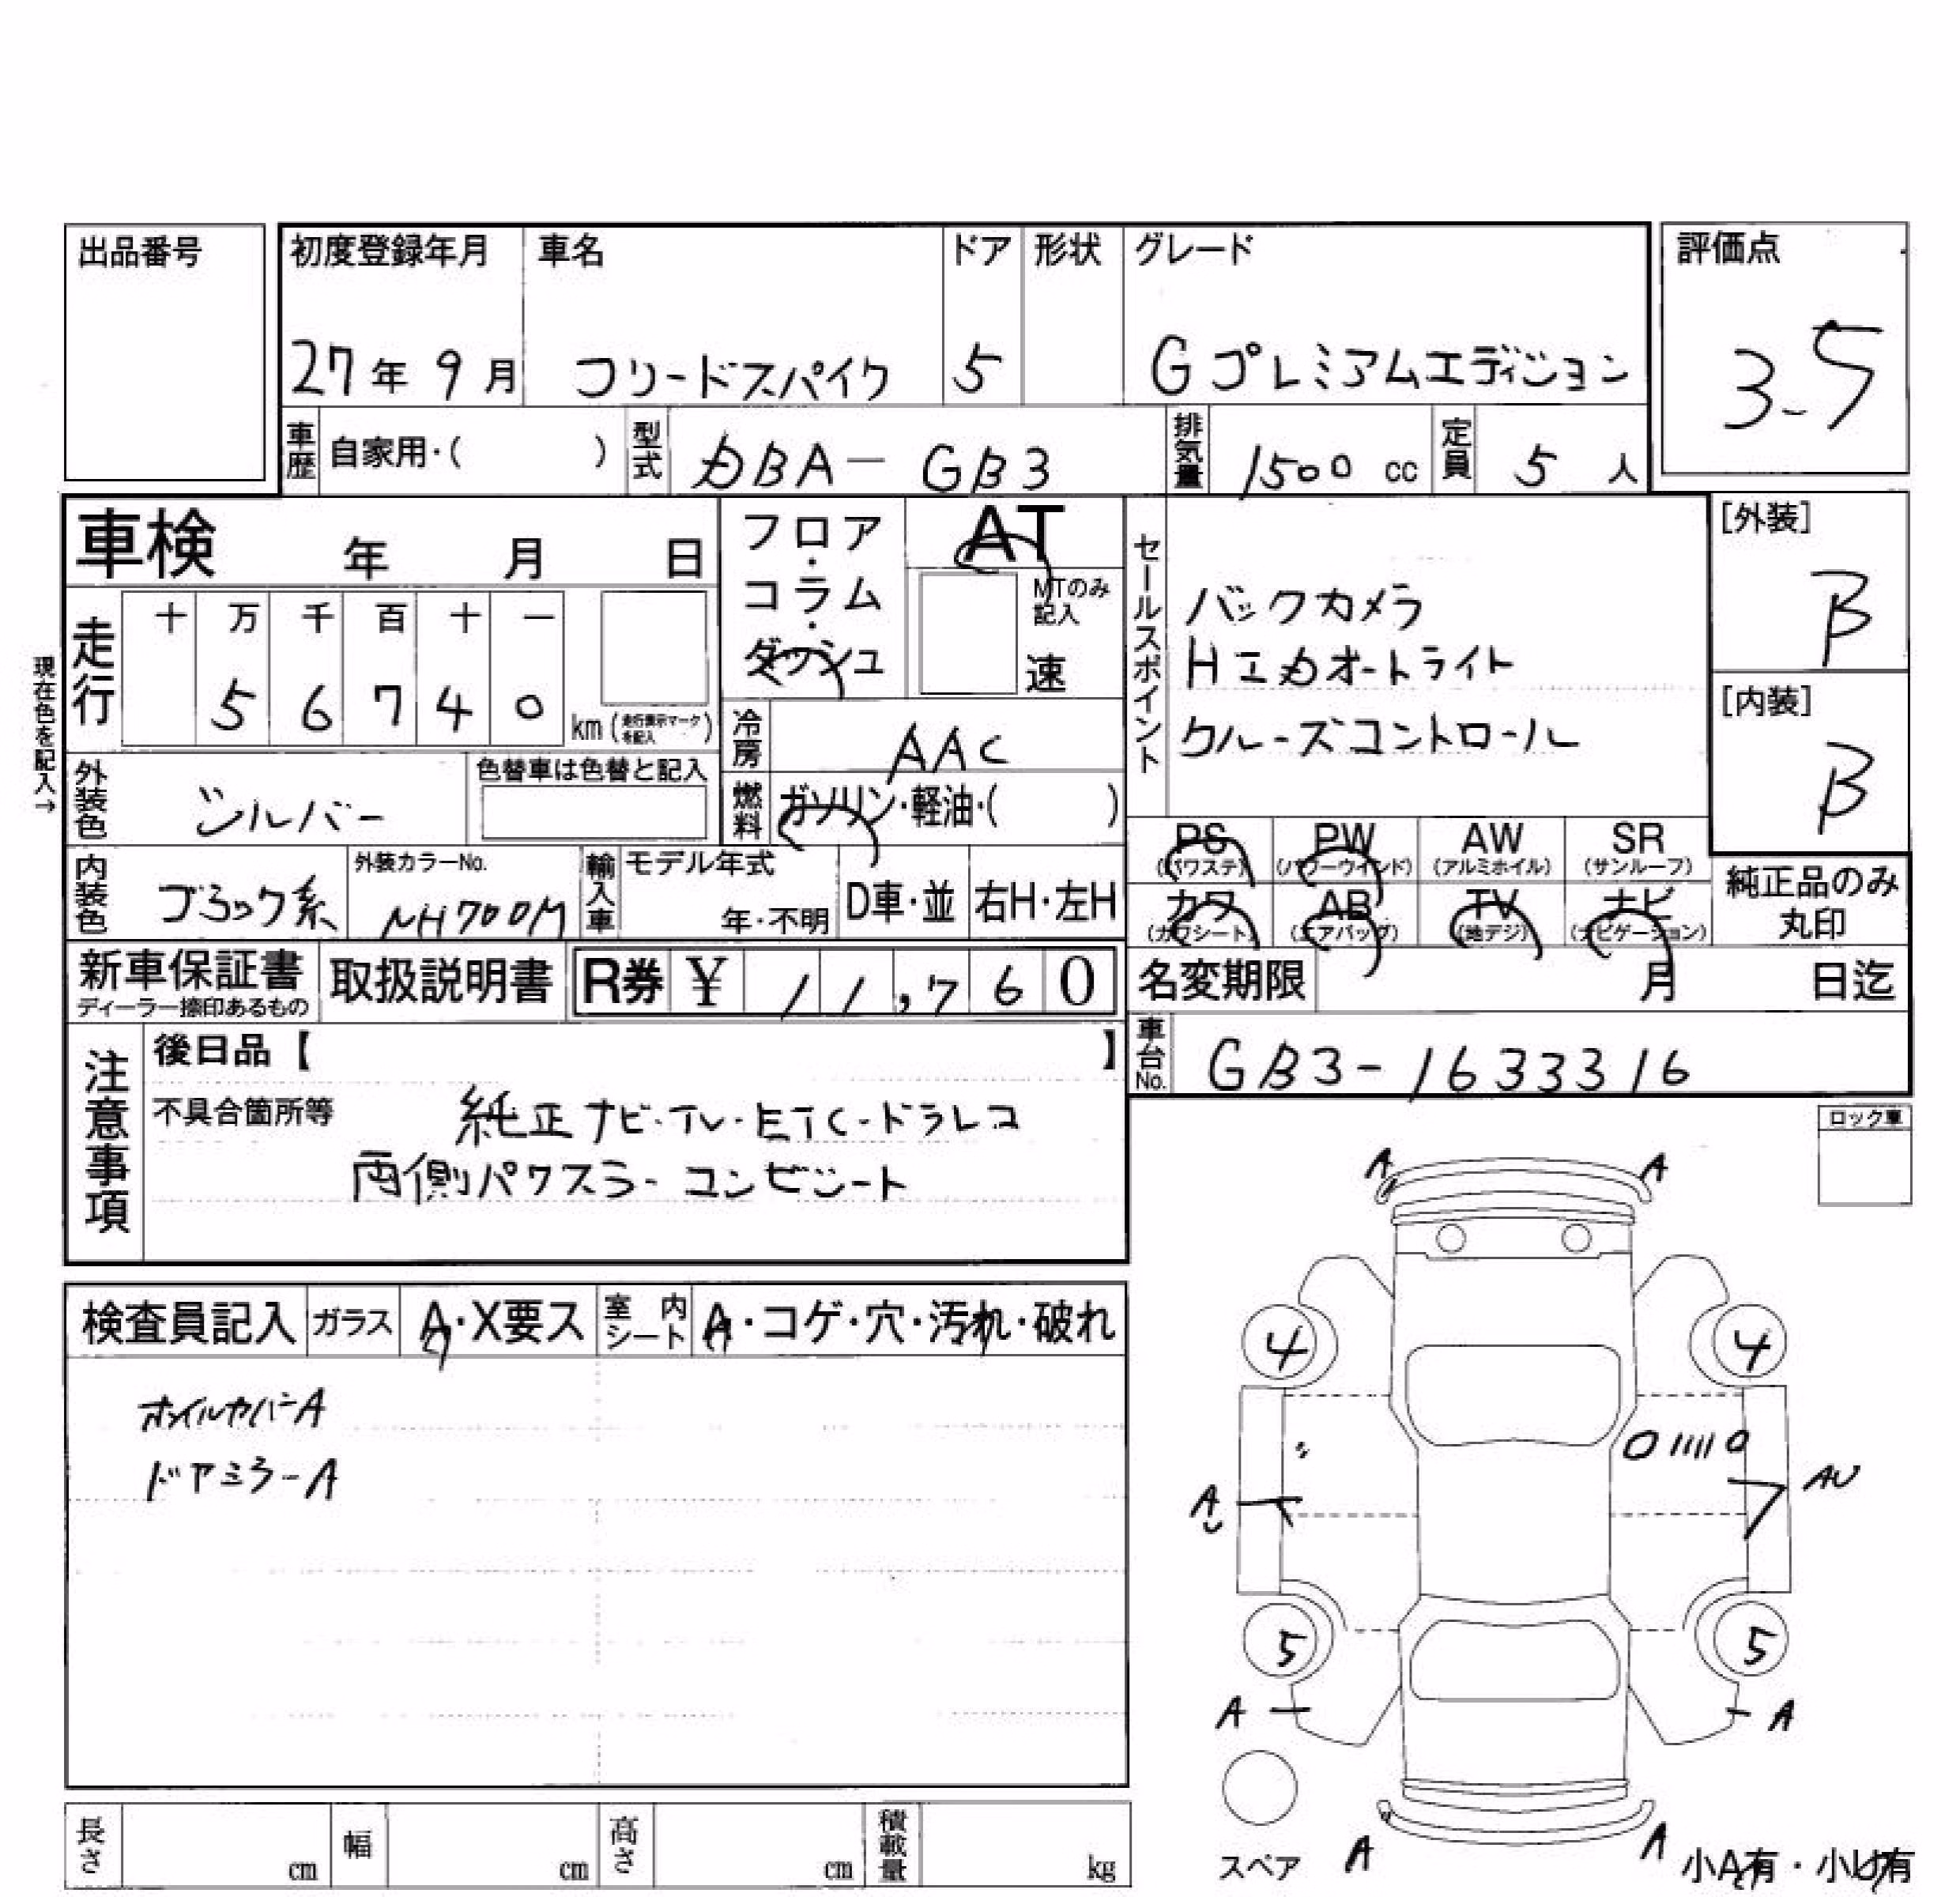 出品番号
初度登録年月 車名 ドア 形状 グレード
評価点
27年 9月 フリードスパイク 5 Gプレミアムエディション
3.5
車歴 自家用・( ) 型式 DBA-GB3 排気量 1500 cc 定員 5 人
車検 年 月 日
フロア・コラム・ダッシュ
AT
MTのみ記入
速
セールスポイント
バックカメラ
HIDオートライト
クルーズコントロール
[外装]
B
[内装]
B
現在色を記入→
走行 十 万 千 百 十 一
5 6 7 4 0 km (走行表示マークを記入)
冷房 AAC
燃料 ガソリン・軽油・( )
外装色 シルバー 色替車は色替と記入
PS (パワステ) PW (パワーウインド) AW (アルミホイル) SR (サンルーフ)
カワ (カワシート) AB (エアバッグ) TV (地デジ) ナビ (ナビゲーション)
純正品のみ丸印
内装色 ブラック系 外装カラーNo. NH700M 輸入車 モデル年式 年・不明 D車・並 右H・左H
新車保証書 ディーラー捺印あるもの 取扱説明書 R券 ¥ 11,760
名変期限 月 日迄
車台No. GB3-1633316
注意事項
後日品【 】
不具合箇所等 純正ナビ・TV・ETC・ドラレコ
両側パワスラ・コンビシート
ロック車
A A
検査員記入 ガラス A・X要ス 室内シート A・コゲ・穴・汚れ・破れ
ホイルカバーA
ドアミラーA
4 4
A AU
5 5
A A
スペア A A 小A有・小U有
長さ cm 幅 cm 高さ cm 積載量 kg